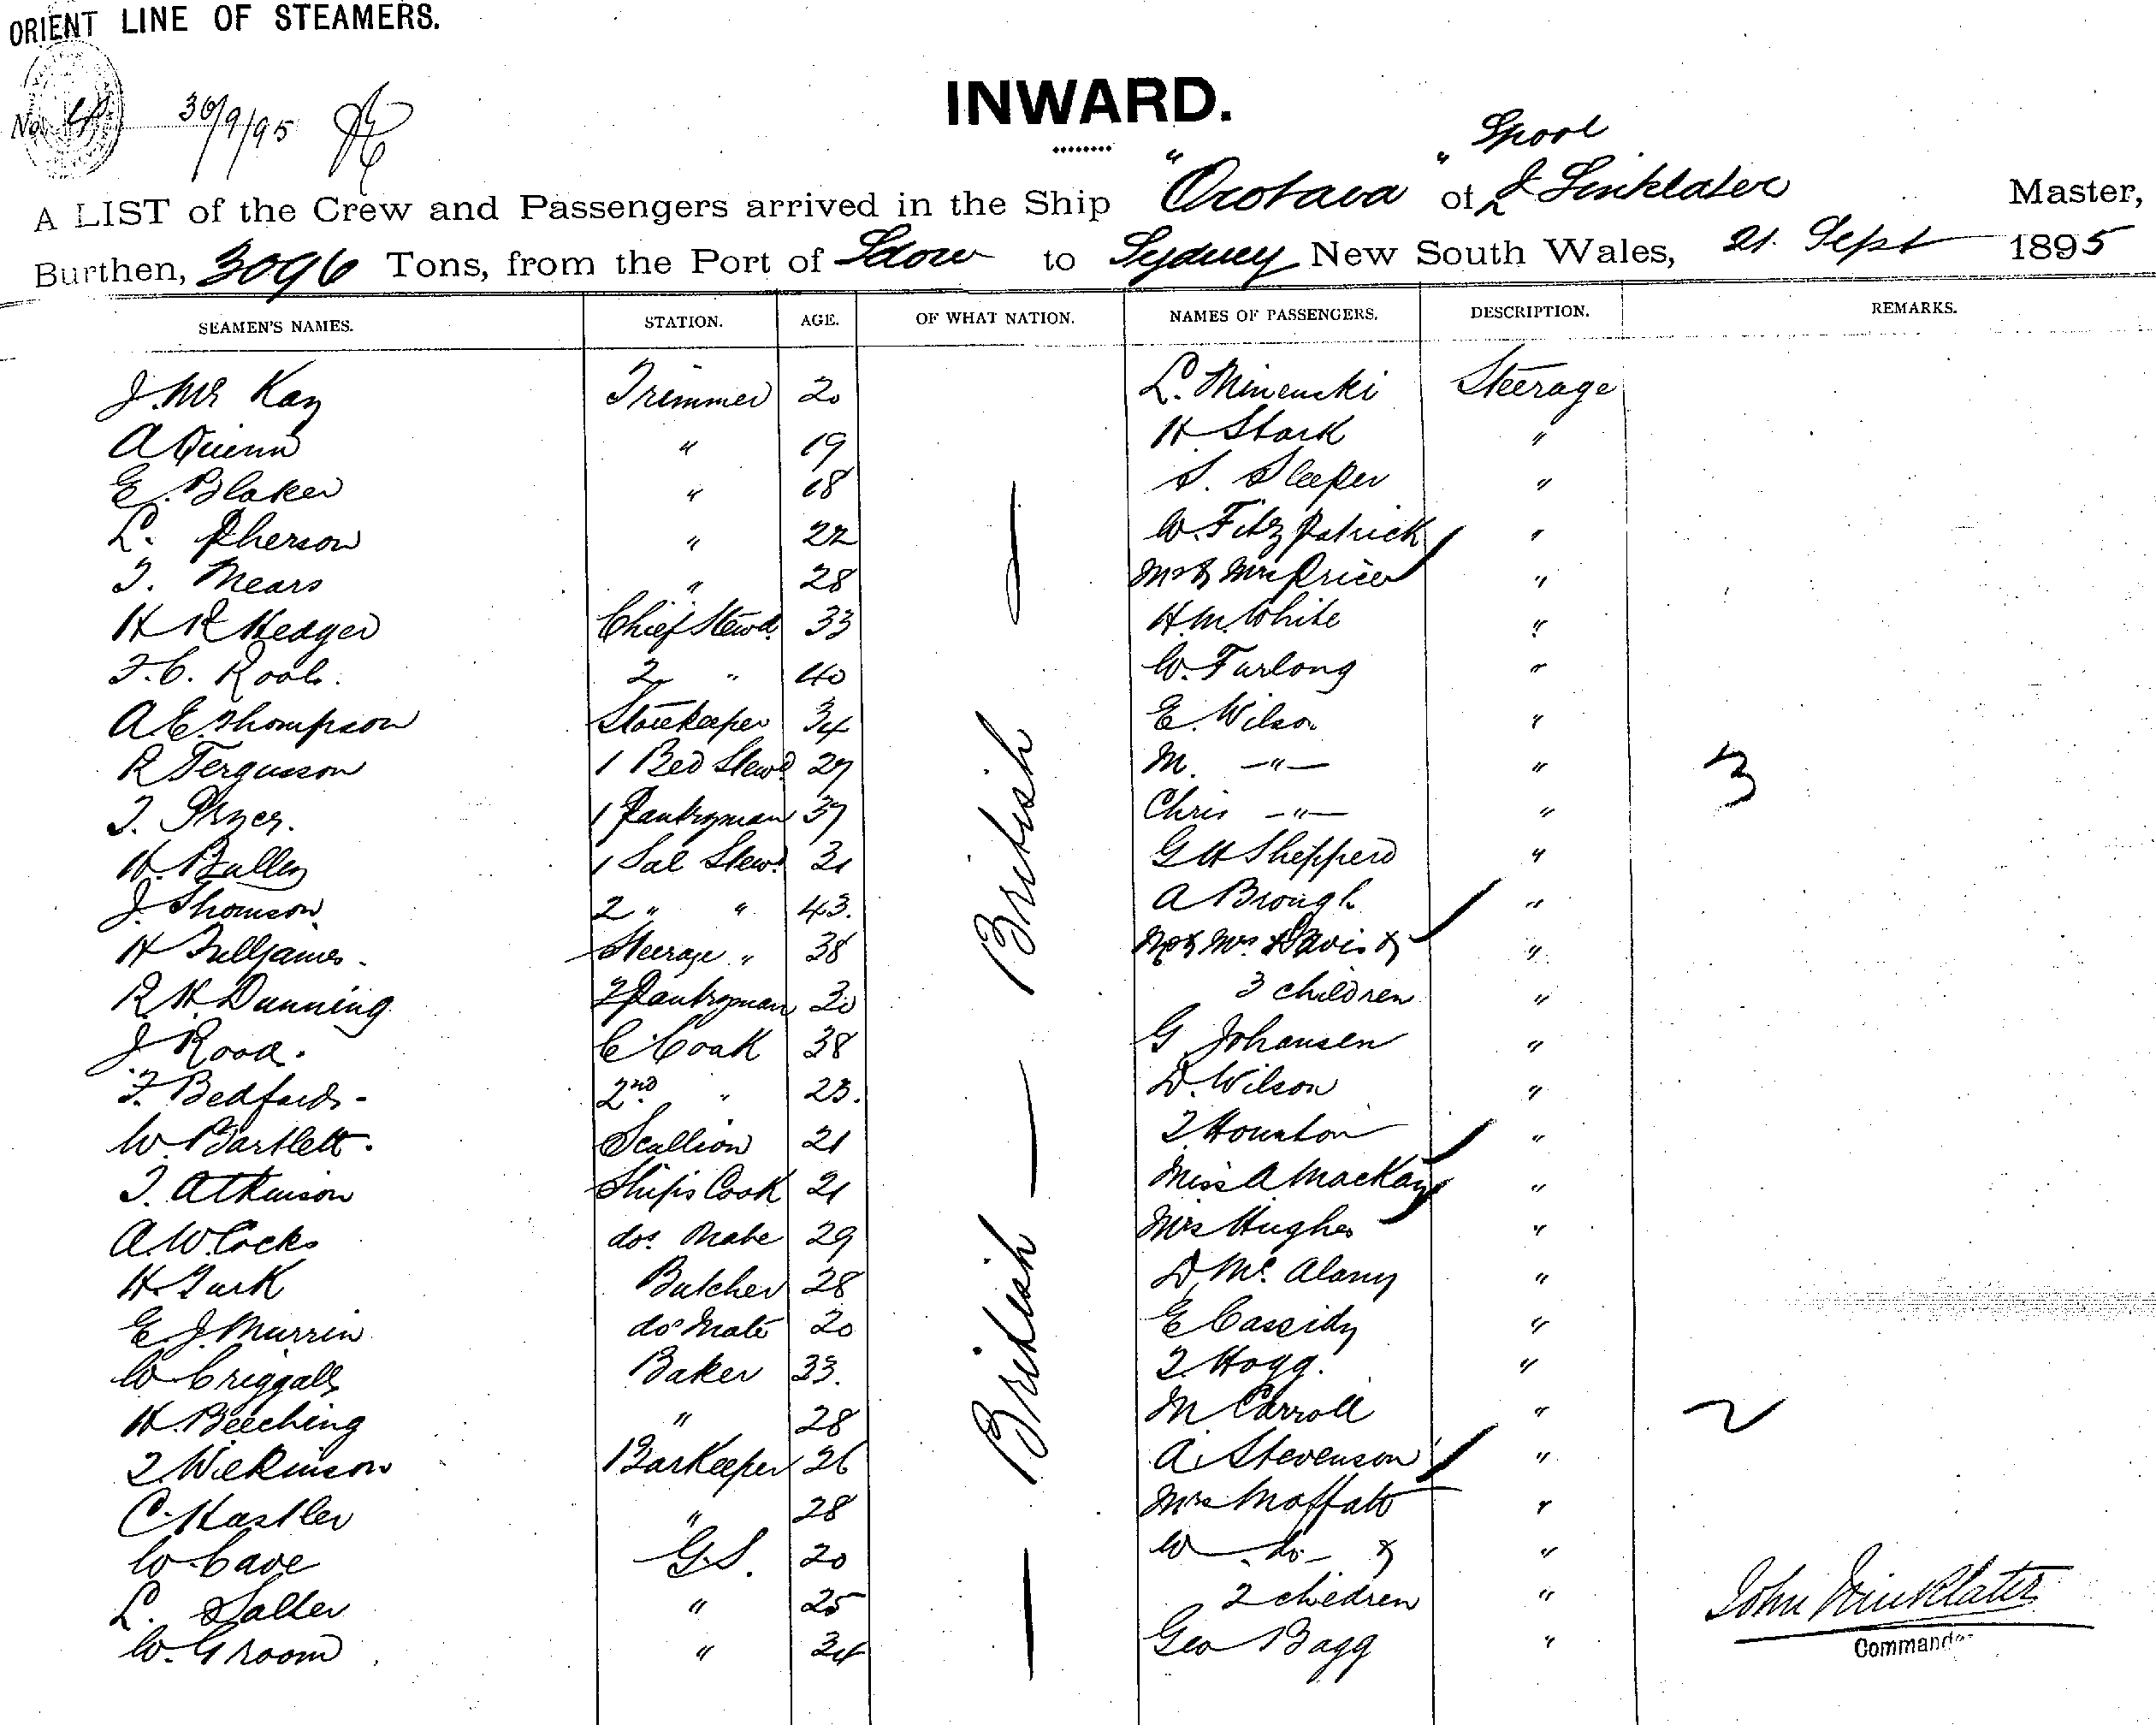 ORIENT LINE OF STEAMERS.
No. 4 30/9/95
INWARD.
A LIST of the Crew and Passengers arrived in the Ship "Orotava" of Lpool J Linklater Master,
Burthen, 3096 Tons, from the Port of Ldon to Sydney New South Wales, 21 Sept 1895
SEAMEN'S NAMES. STATION. AGE. OF WHAT NATION. NAMES OF PASSENGERS. DESCRIPTION. REMARKS.
J. Mc Kay Trimmer 20 L. Minenski Steerage
A Quinn " 19 H Stark "
E. Blaker " 18 S. Sleeper "
L. Pherson " 22 W. Fitzpatrick "
T. Mears " 28 Mr & Mrs Price "
H R Hedger Chief Stewd. 33 H. M. White "
F. C. Rook. 2 " 40 W. Furlong "
A E. Thompson Storekeeper 34 E. Wilson "
R Fergusson 1 Bed Stewd 27 M. -"- " 3
T. Pryer. 1 Pantryman 37 Chris -"- "
H. Bullen 1 Sal Stewd 31 G H Shepperd "
J. Thomson 2 " " 43. A Brough "
H Fulljames. Steerage " 38 Mr & Mrs Davis & "
R. H. Dunning 2 Pantryman 30 3 children "
J Rood. C Cook 38 G Johansen "
F. Bedford- 2nd " 23. D. Wilson "
W. Bartlett. Scullion 21 T Houston "
T. Atkinson Ships Cook 21 Miss A MacKay "
A. W. Cocks do. Mate 29 Mrs Hughes "
H Turk Butcher 28 D. Mc. Alany "
E J. Murrin do Mate 20 E Cassidy "
W Criggall Baker 33. T. Hogg. "
H. Beeching " 28 M Carroll " 2
T Wilkinson BarKeeper 26 A. Stevenson "
C. Hastler " 28 Mrs Moffatt "
W. Cave G.S. 20 W - do - & "
L. Salter " 25 2 children "
W. Groom " 34 Geo Bagg "
British
British
John Linklater
Commander